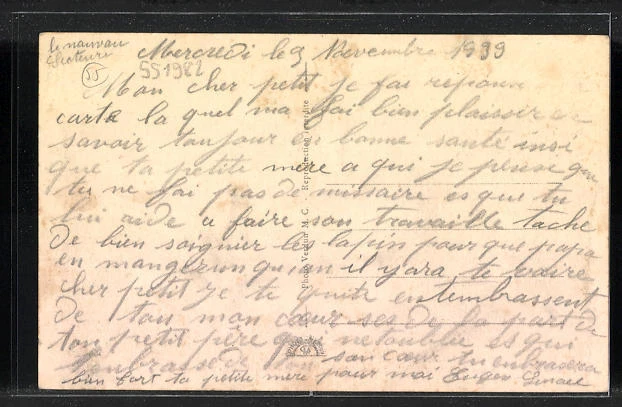 le nauvau
Secteure
55
Mercredi le 9 Novembre 1939
551982
Mon cher petit je fai repoun
carte la quel ma fai bien plaissir de
savoir toujour en bonne santé insi
que ta petite mère a qui je pense que
tu ne fai pas de missaire es que tu
lui aide a faire son travaille tache
de bien soignier les lapin pour que papa
en mange quan il yara te voire
cher petit je te quite en tembrassent
de tou mon cœur ses de la part de
ton petit père qui ne toublie es qui
tembrasse de tou son cœur tu enbrasera
bien fort ta petite mère pour moi Eugen
Photo Véritor M. C. Reproduction interdite